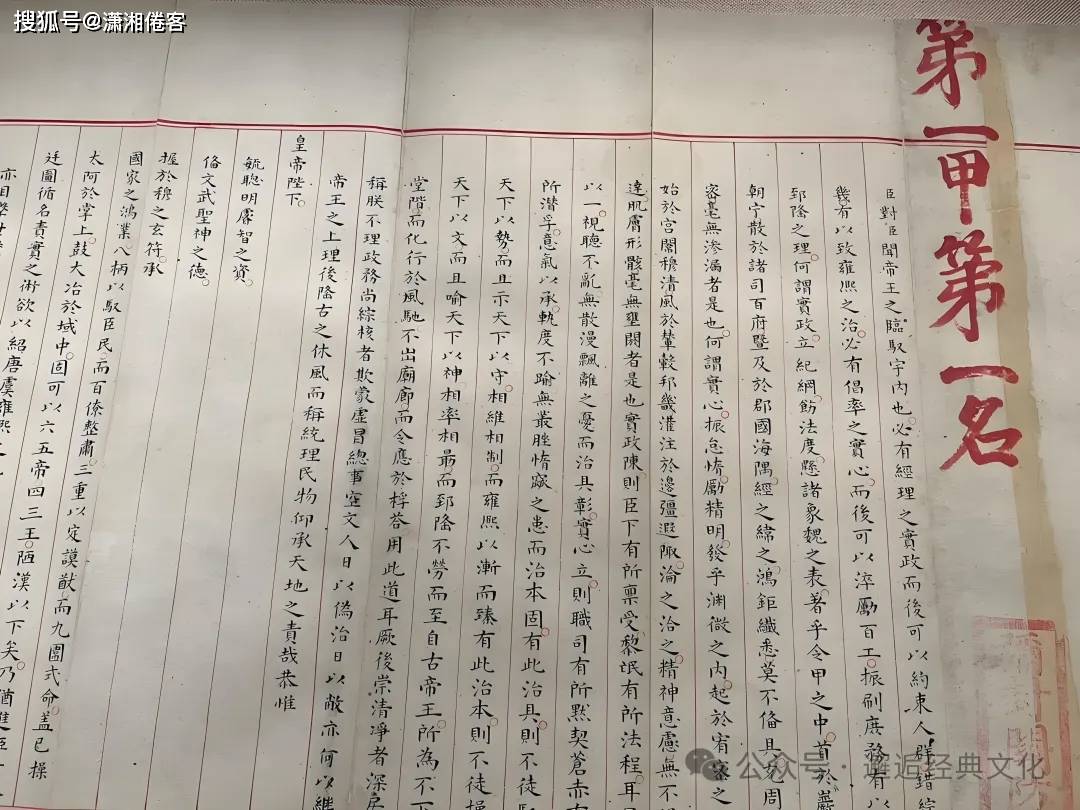 搜狐号@潇湘倦客
第一甲第一名
臣對臣聞帝王之臨馭宇內也必有經理之實政而後可以約束人群錯綜
幾有以致雍熙之治必有倡率之實心而後可以淬勵百工振刷庶務有
郅隆之理何謂實政立紀綱飭法度懸諸象魏之表著乎令甲之中首於巖
朝宁散於諸司百府暨及於郡國海隅經之緯之鴻鉅纖悉莫不偹具充周
密毫無滲漏者是也何謂實心振怠惰勵精明發乎淵微之內起於宥密之
始於宮闈穆清風於輦轂邦畿灌注於邊疆遐陬淪之洽之精神意慮無不
達肌膚形骸毫無壅閼者是也實政陳則臣下有所稟受黎氓有所法程耳
以一視聽不亂無散漫飄離之憂而治具彰實心立則職司有所默契蒼赤
所潛孚意氣以承軌度不踰無叢脞惰窳之患而治本固有此治具則不徒馭
天下以勢而且示天下以守相維相制而雍熙以漸而臻有此治本則不徒操
天下以文而且喻天下以神相率相最而郅隆不勞而至自古帝王所為不下
堂階而化行於風馳不出廟廊而令應於桴荅用此道耳厥後崇清淨者深居
稱朕不理政務尚綜核者欺蒙虛冒總事空文人日以偽治日以敝亦何以繼
帝王之上理後隆古之休風而稱統理民物仰承天地之責哉恭惟
皇帝陛下
毓聰明睿智之資
偹文武聖神之德
握於穆之玄符承
國家之鴻業八柄以馭臣民而百僚整肅三重以定謨猷而九圍式命蓋已操
太阿於掌上鼓大冶於域中固可以六五帝四三王陋漢以下矣乃猶進臣
廷圖循名責實之術欲以紹唐虞雍熙之
公众号·邂逅经典文化